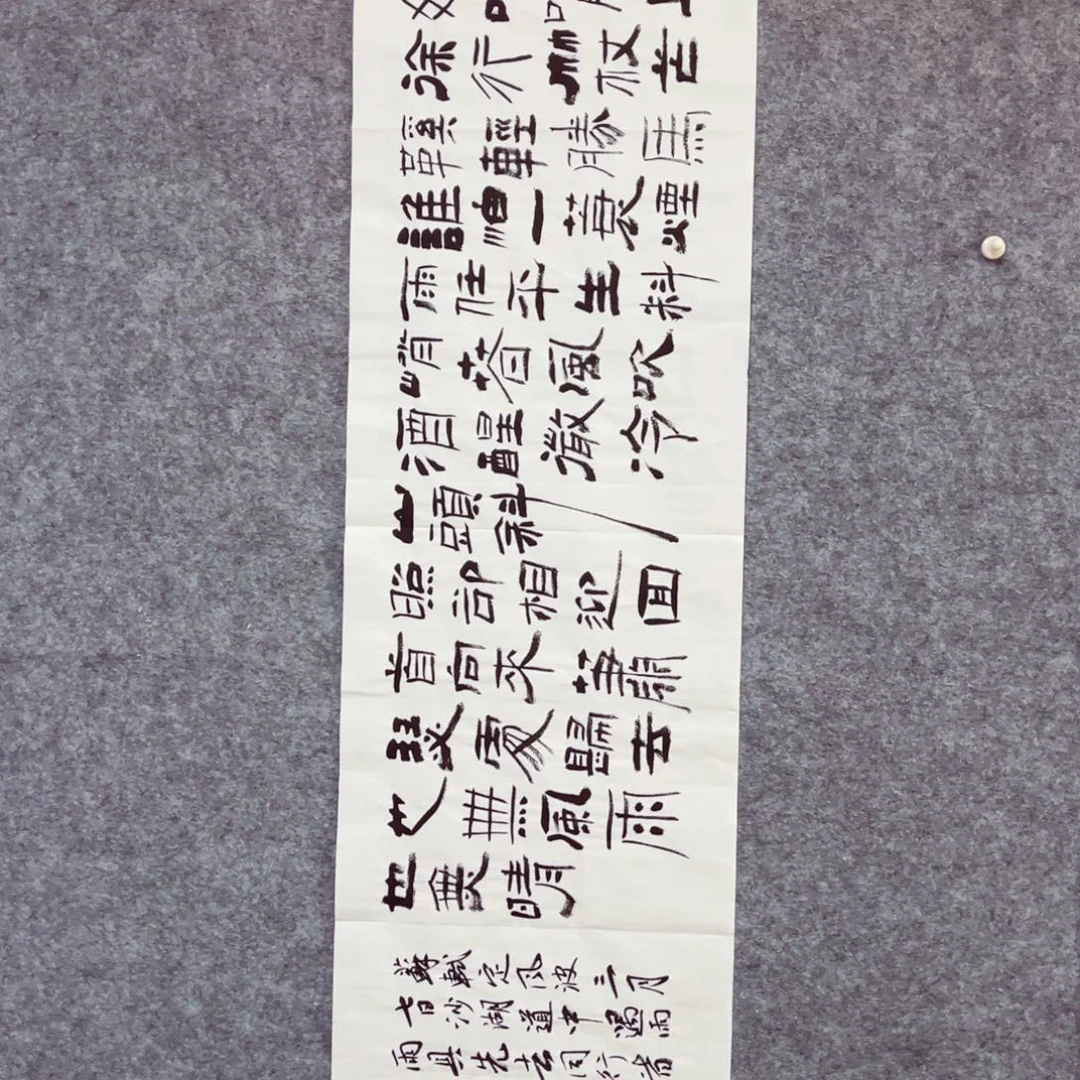 徐行竹杖芒
鞵輕勝馬
誰怕一蓑煙
雨任平生料
峭春風吹
酒醒微冷
山頭斜
照卻相迎回
首向來蕭
瑟處歸去
也無風雨
也無晴
蘇軾定風波三月
七日沙湖道中遇雨
雨具先去同行者